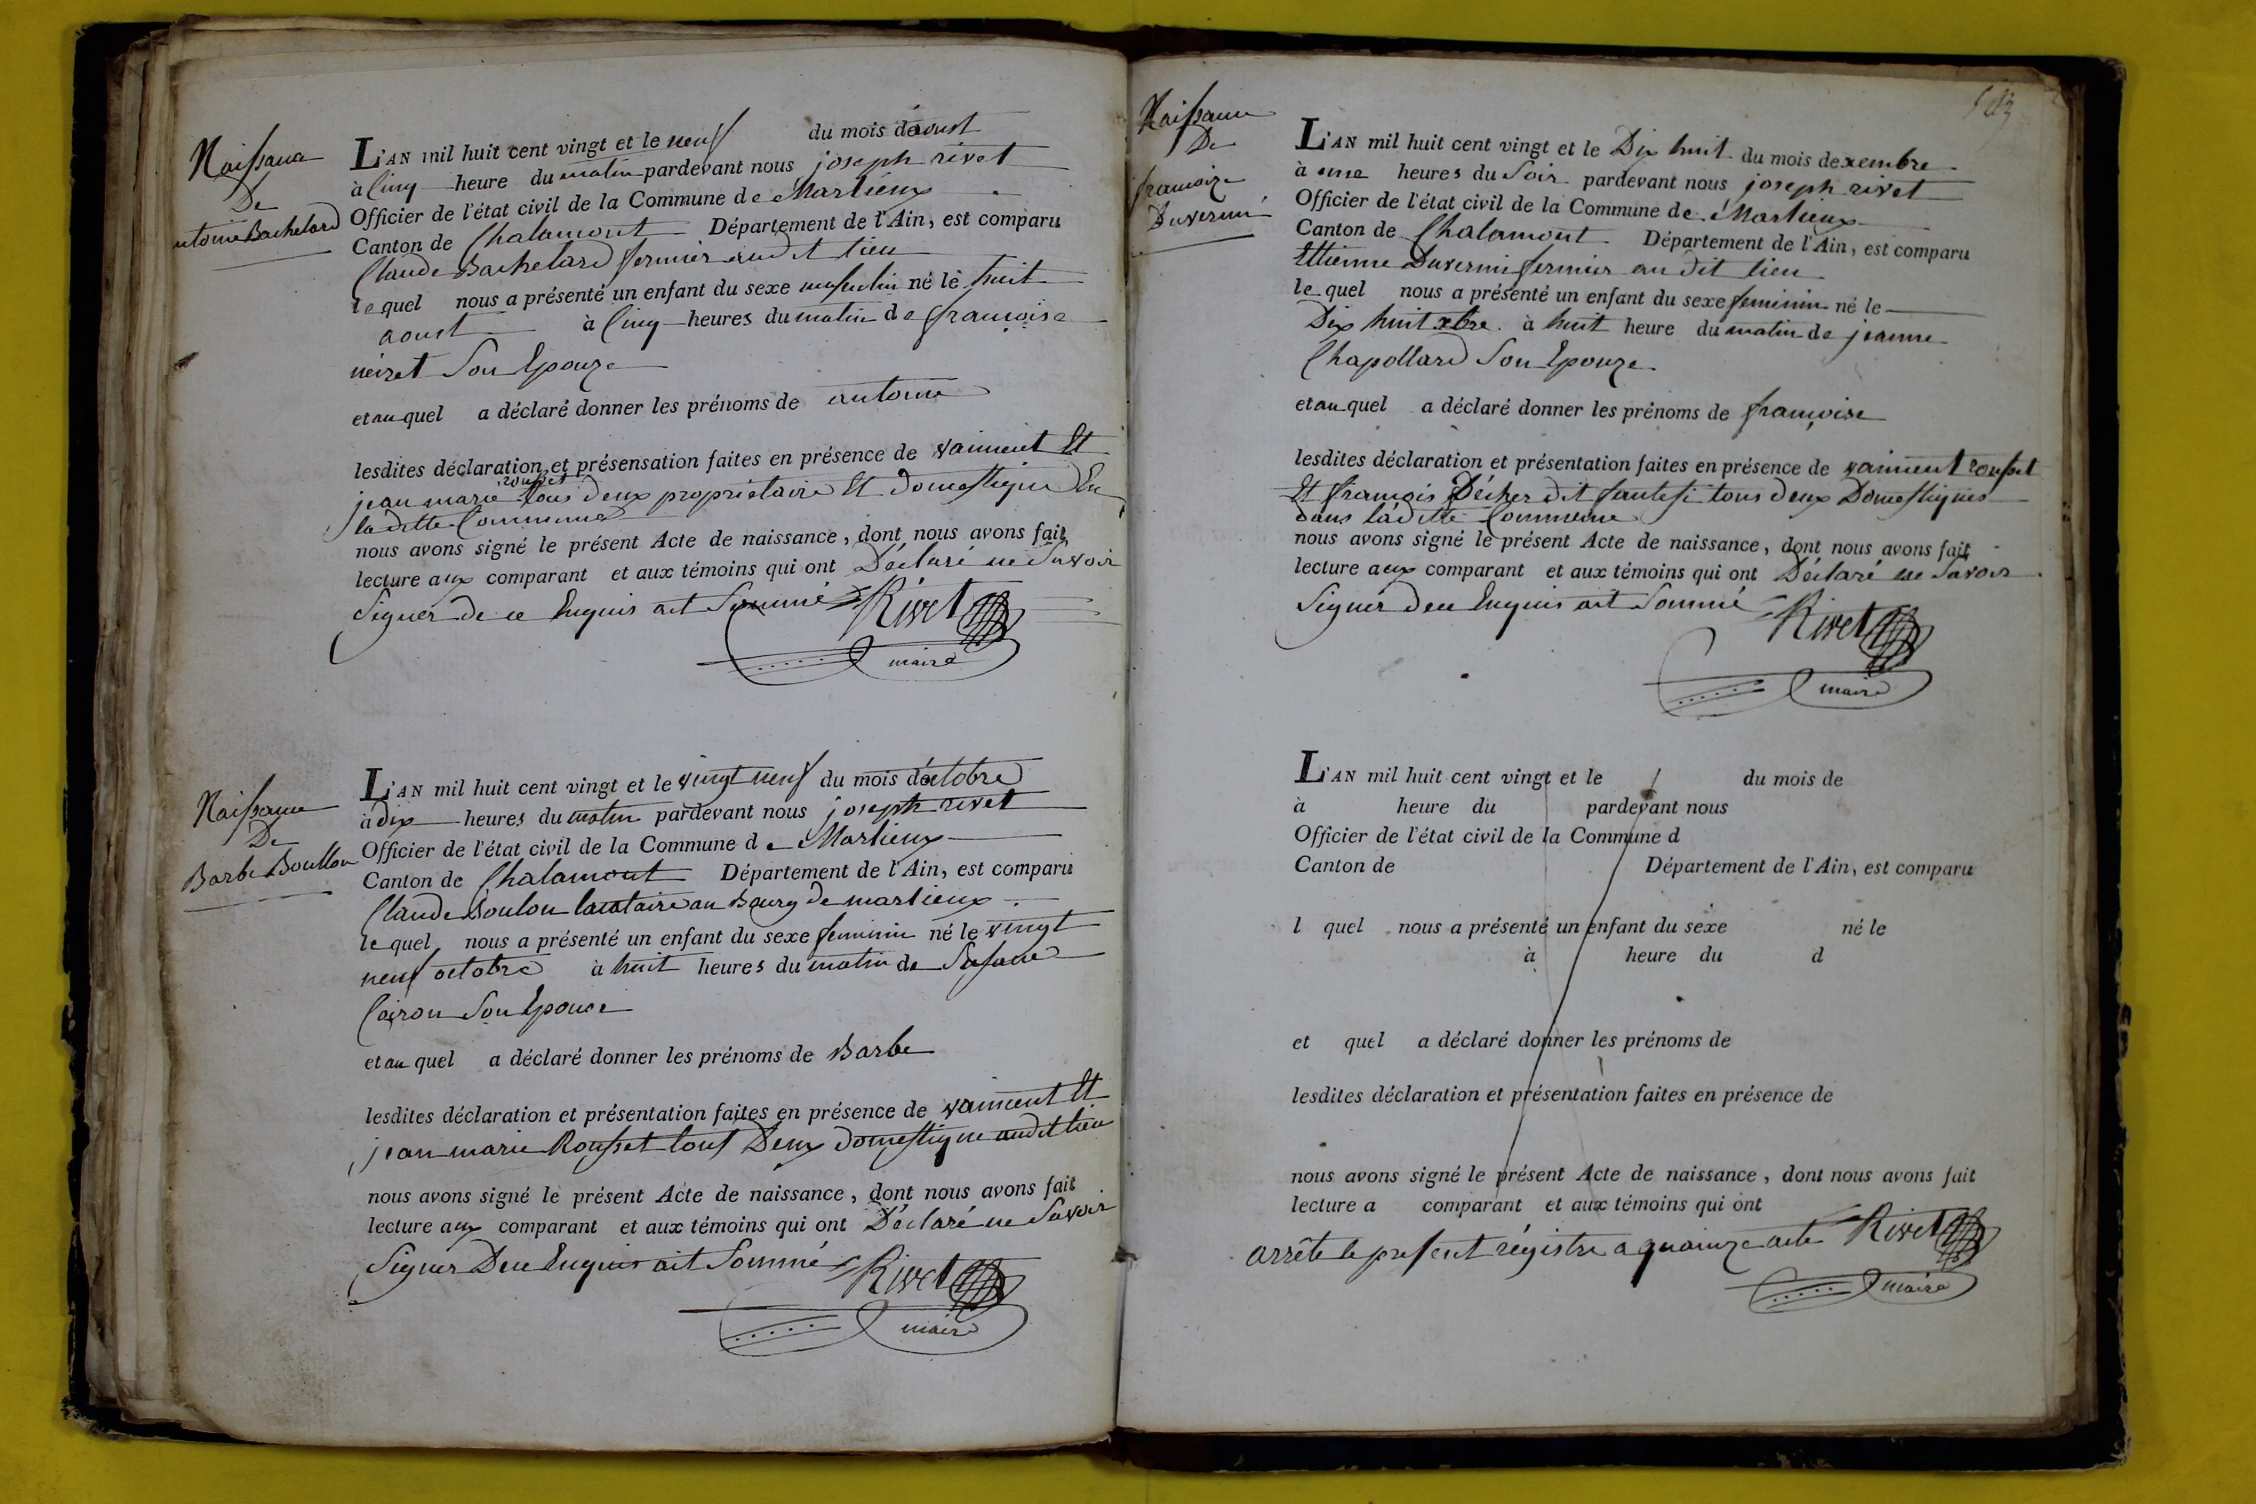 Naissance
De
antoine Bachelard
L'AN mil huit cent vingt et le neuf du mois d'aoust
à Cinq heure du matin pardevant nous joseph rivet
Officier de l'état civil de la Commune de Marlieux
Canton de Chalamont Département de l'Ain, est comparu
Claude Bachelard fermier audit lieu
lequel nous a présenté un enfant du sexe masculin né le huit
aoust à Cinq heures du matin de francoise
néiret Son Epouze
et au quel a déclaré donner les prénoms de antoine
lesdites déclaration et présensation faites en présence de vaincent Et
rousset
jean marie tous deux propriétaire Et domestique En
laditte Commune
nous avons signé le présent Acte de naissance, dont nous avons fait
lecture aux comparant et aux témoins qui ont Déclaré ne Savoir
Signer de ce Enquis ait Sommé Rivet
maire
Naissance
De
Barbe Boullon
L'AN mil huit cent vingt et le vingt neuf du mois d'octobre
à dix heures du matin pardevant nous joseph rivet
Officier de l'état civil de la Commune de Marlieux
Canton de Chalamont Département de l'Ain, est comparu
Claude Boulon locataire au Bourg de marlieux
lequel nous a présenté un enfant du sexe feminin né le vingt
neuf octobre à huit heures du matin de
Coiron Son Epouse
et au quel a déclaré donner les prénoms de Barbe
lesdites déclaration et présentation faites en présence de vaincent Et
jean marie Rousset tous Deux domestique audit lieu
nous avons signé le présent Acte de naissance, dont nous avons fait
lecture aux comparant et aux témoins qui ont Déclaré ne Savoir
Signer De ce Enquis ait Sommé Rivet
maire
Naissance
De
francoize
Duvernié
L'AN mil huit cent vingt et le Dix huit du mois de xembre
à une heures du Soir pardevant nous joseph rivet
Officier de l'état civil de la Commune de Marlieux
Canton de Chalamont Département de l'Ain, est comparu
Ettienne Duverni fermier au dit lieu
lequel nous a présenté un enfant du sexe feminin né le
Dix huit xbre à huit heure du matin de jeanne
Chapollard Son Epouze
et au quel a déclaré donner les prénoms de françoise
lesdites déclaration et présentation faites en présence de vaincent rousset
Et françois dit tous deux Domestiques
dans laditte Commune
nous avons signé le présent Acte de naissance, dont nous avons fait
lecture aux comparant et aux témoins qui ont Déclaré ne Savoir
Signer de ce Enquis ait Sommé Rivet
maire
L'AN mil huit cent vingt et le du mois de
à heure du pardevant nous
Officier de l'état civil de la Commune d
Canton de Département de l'Ain, est comparu
l quel nous a présenté un enfant du sexe né le
à heure du d
et quel a déclaré donner les prénoms de
lesdites déclaration et présentation faites en présence de
nous avons signé le présent Acte de naissance, dont nous avons fait
lecture a comparant et aux témoins qui ont
arrête le present régistre a quainze acte Rivet
maire